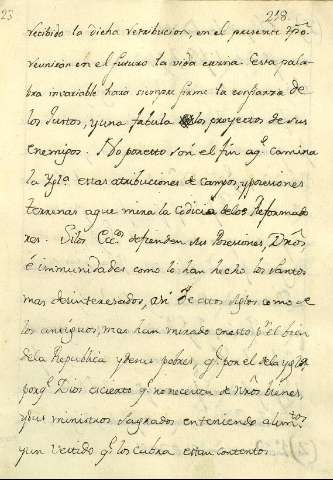 23
218.
recibido la dicha retribucion, en el presente tpõ.
reuniran en el futuro la vida eterna. Esta pala-
bra invariable hara siempre firme la confianza de
los Justos, y una fabula los proyectos de sus
enemigos. No por esto són el fin aq.e camina
la Ygl.a estas atribuciones de campos, y poseciones
terrenas aque mira la Codicia delos Reformado
res. Silos Ecc.os defienden sus Posesiones, Dr̃os
é immunidades como lo han hecho los santos
mas desinteresados, así de estos siglos como de
los antiguos, mas han mirado enesto p.r el bien
dela Republica y desus pobres, q.e por el dela Ygl.a,
porq.e Dios es cierto q.e no necesita de Nr̃os bienes,
y sus ministros Sagrados enteniendo alim.tos
y un Vestido q.e los cubra estan contentos.